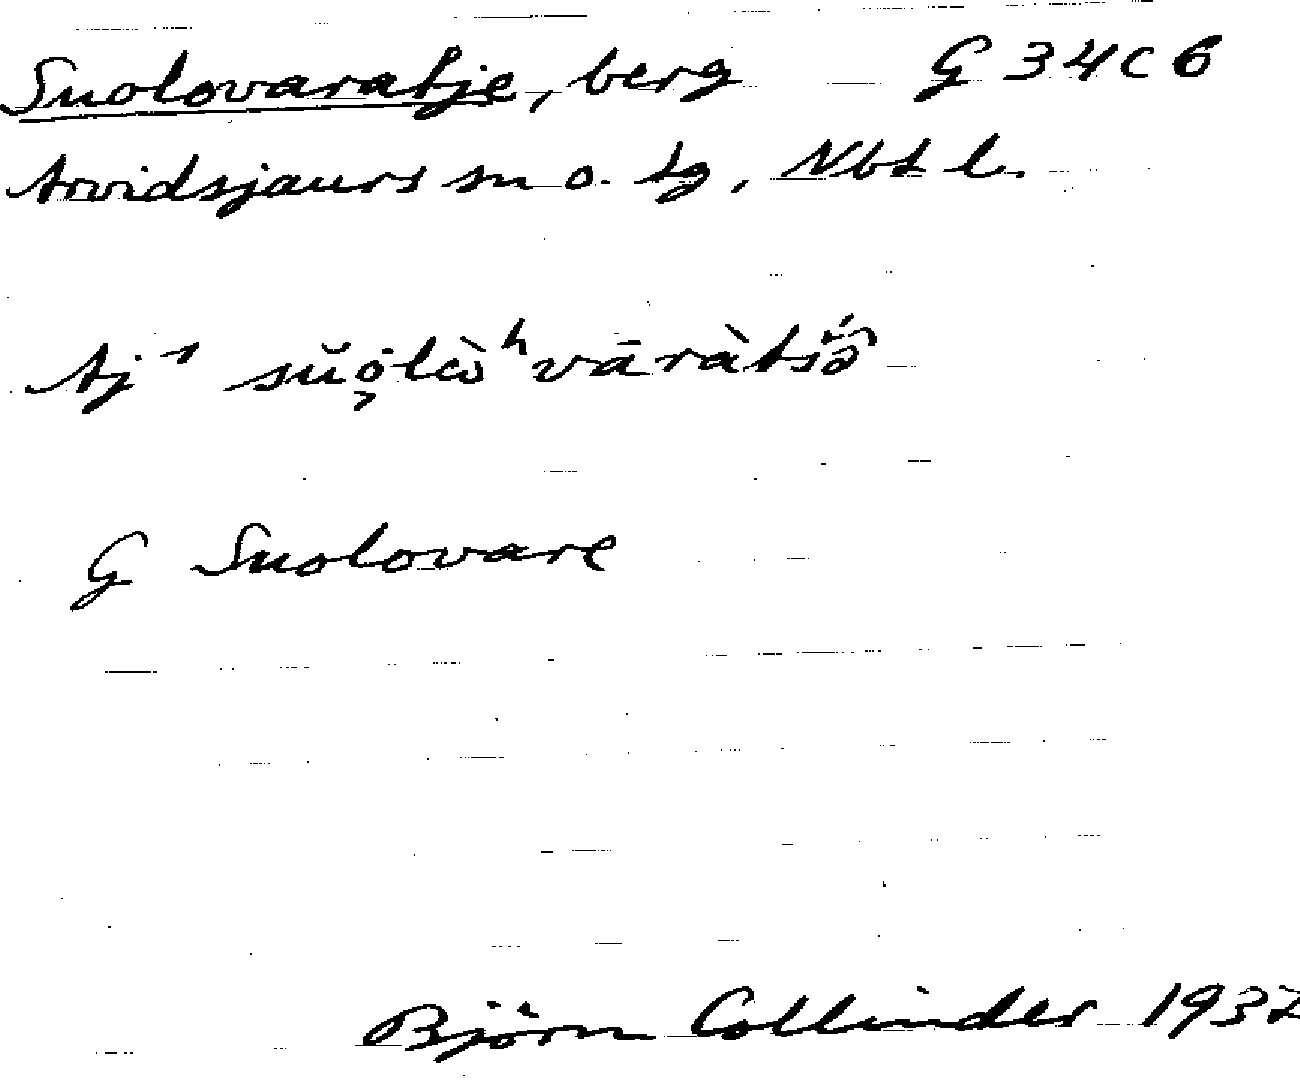 Suolovaratje, berg G 34 C 6
Arvidsjaurs sn o. tg, Nbt l.
Aj ⁻¹ sŭo̜làʰvāràtśə̂
G Suolovare
Björn Collinder 1932